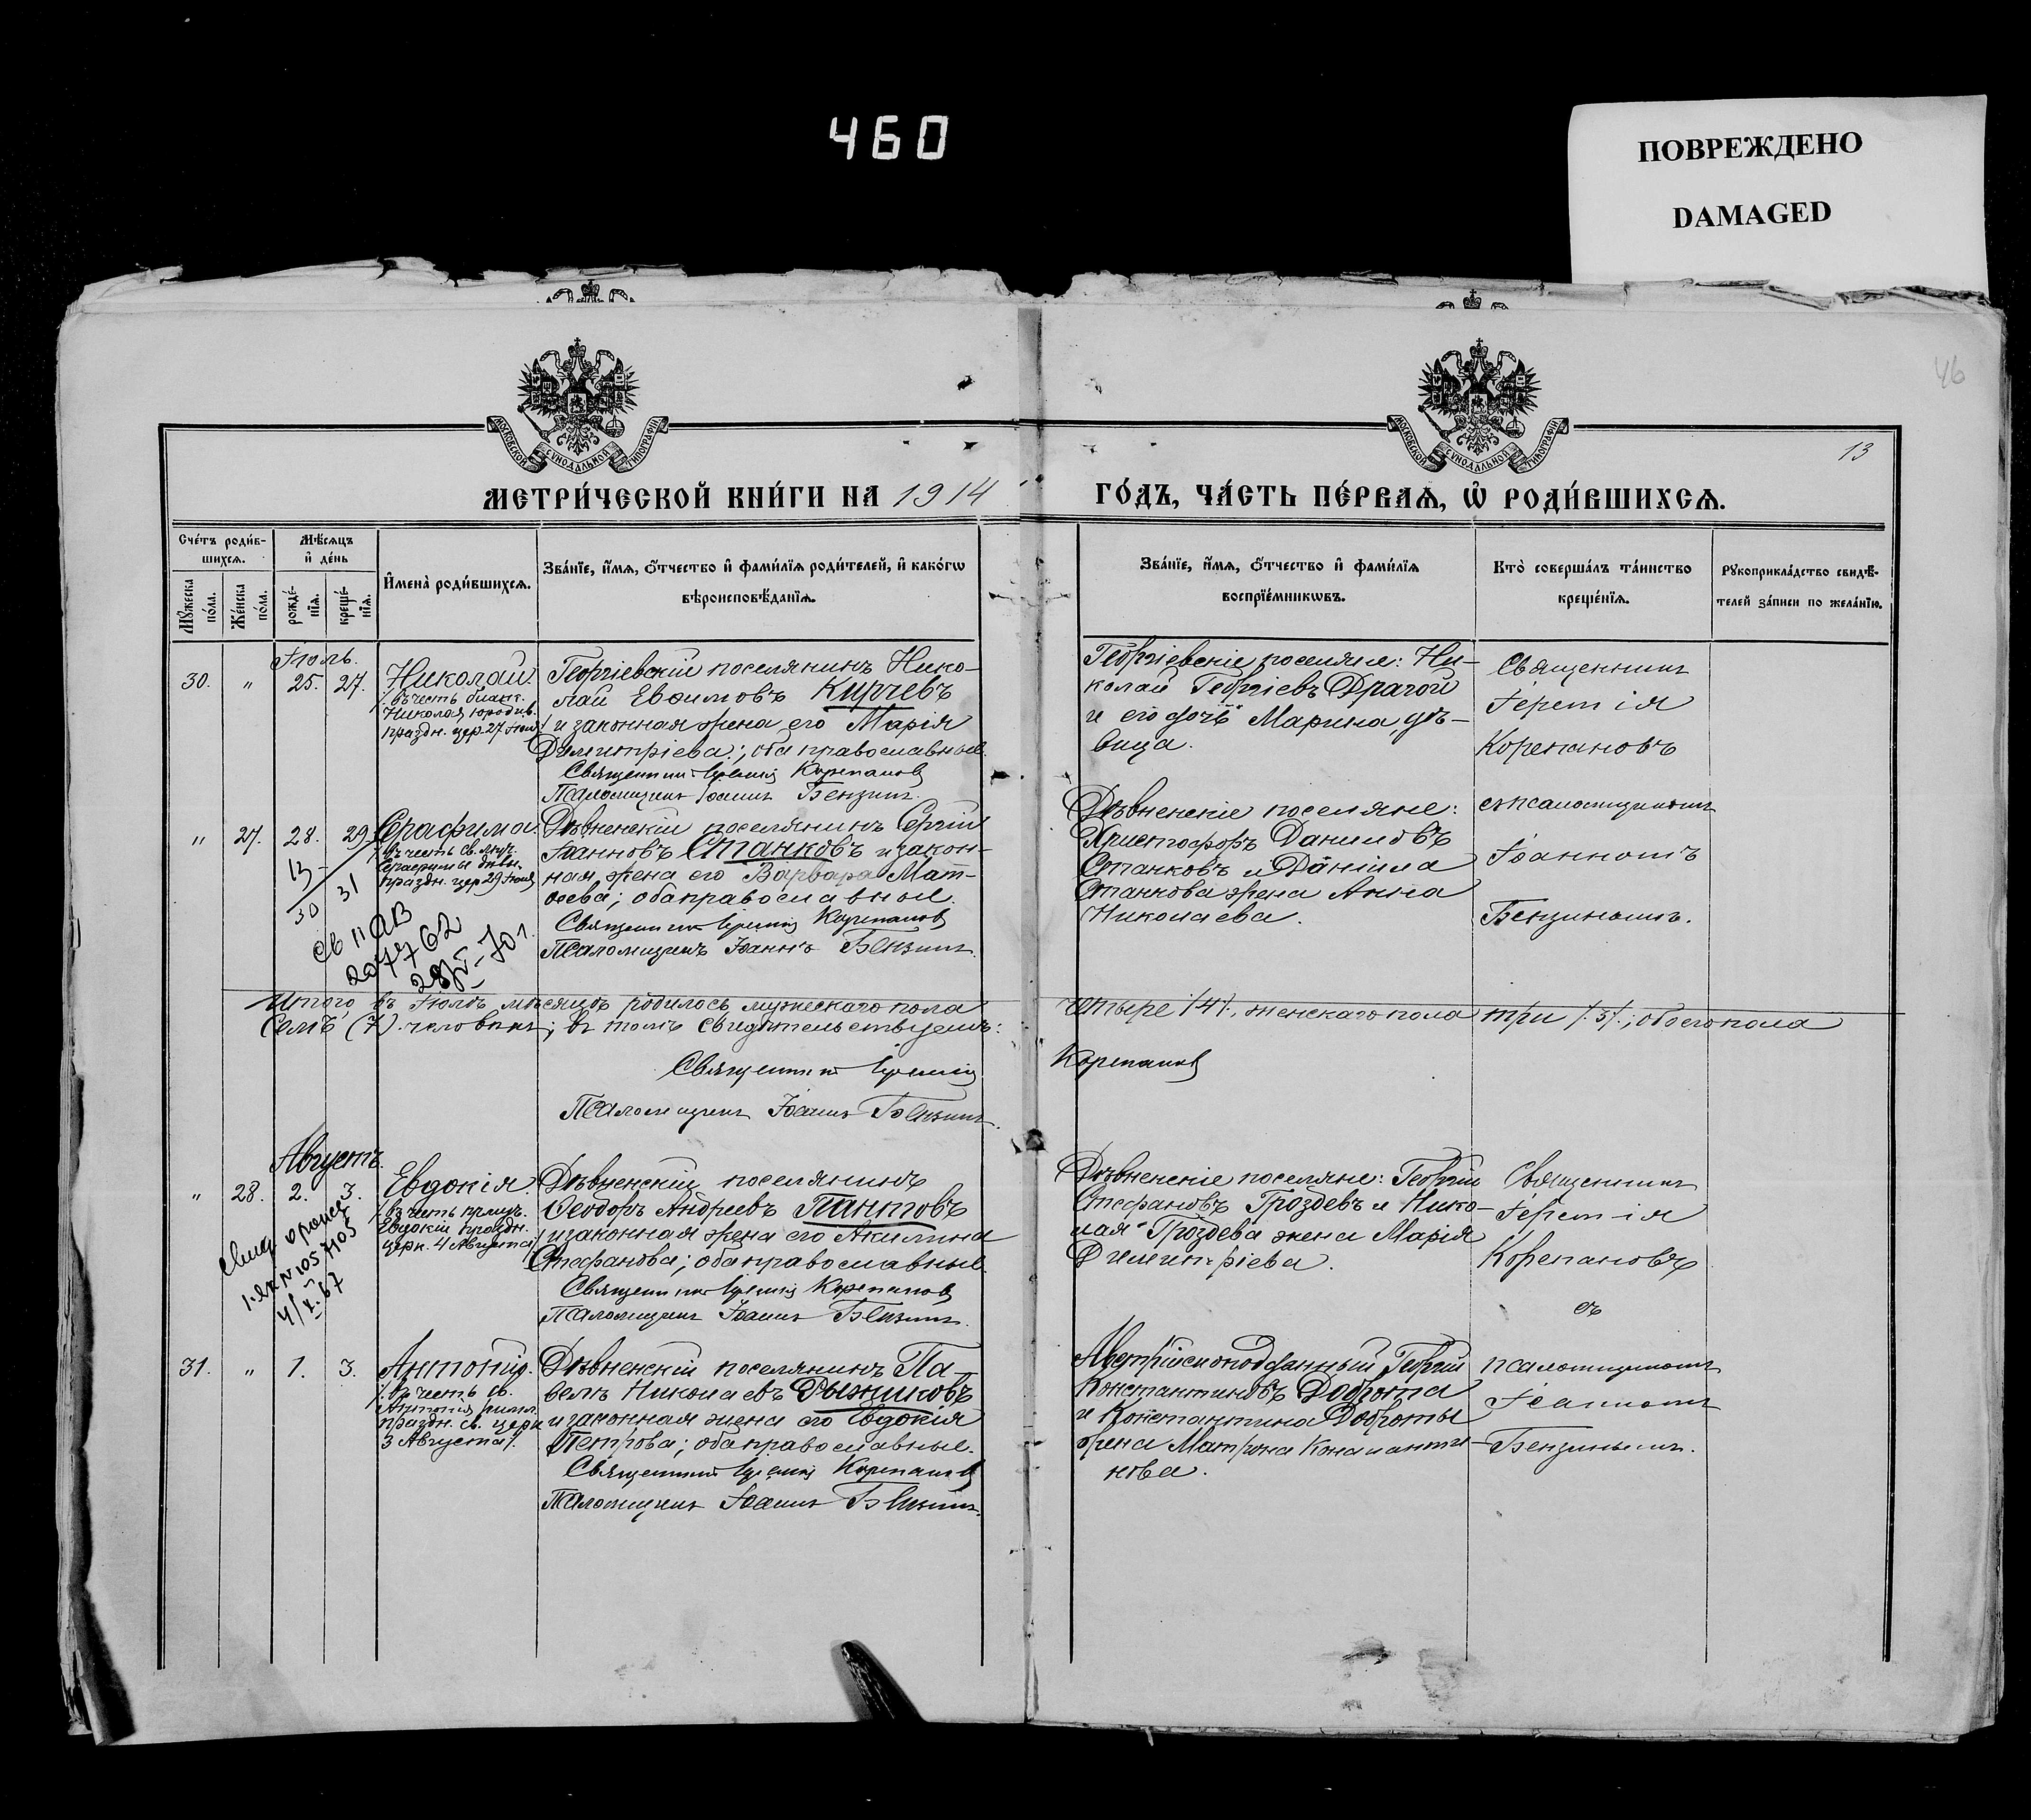 460
ПОВРЕЖДЕНО
DAMAGED
46
13
МОСКОВСКОЙ СѴНОДАЛЬНОЙ ТИПОГРАФІИ
МОСКОВСКОЙ СѴНОДАЛЬНОЙ ТИПОГРАФІИ
МЕТРИ́ЧЕСКОЙ КНИ́ГИ НА 1914
ГО́ДЪ, ЧА́СТЬ ПЕ́РВАѦ, Ѡ҆ РОДИ́ВШИХСѦ.
Сче́тъ роди́в-
шихсѧ.
Мѣ́сѧцъ
и҆ де́нь
Мꙋ́жеска
по́ла.
Же́нска
по́ла.
рожде́-
нїѧ.
креще́-
нїѧ.
И҆мена̀ роди́вшихсѧ.
Зва́нїе, и҆́мѧ, ѻ҆́тчество и҆ фами́лїѧ роди́телей, и҆ како́гѡ
вѣроисповѣ́данїѧ.
Зва́нїе, и҆́мѧ, ѻ҆́тчество и҆ фами́лїѧ
воспрїе́мникѡвъ.
Кто̀ соверша́лъ та́инство
креще́нїѧ.
Рꙋкоприкла́дство свидѣ́-
телей за́писи по жела́нїю.
Іюль.
30. " 25. 27. Николай
/. въ честь блаж.
Николая юродив.
праздн. цер. 27 Іюля/.
Георгіевскій поселянинъ Нико-
лай Евѳимовъ Кирчевъ
и законная жена его Марія
Димитріева; оба православные.
Священникъ Іеремія Корепановъ
Псаломщикъ Іоаннъ Бензинъ.
Георгіевскіе поселяне: Ни-
колай Георгіевъ Драгой
и его дочь Марина, дѣ-
вица.
Священникъ
Іеремія
Корепановъ
съ псаломщикомъ
Іоанномъ
Бензинымъ.
" 27. 28. 29. Серафима.
/. въ честь св. муч.
Серафимы дѣвы.
праздн. цер. 29 Іюля
Дѣвненскій поселянинъ Сергій
Іоанновъ Станковъ и закон-
ная жена его Варвара Мат-
ѳеева; оба православные.
Священникъ Іеремія Корепановъ
Псаломщикъ Іоаннъ Бензинъ.
Дѣвненскіе поселяне:
Христофоръ Даниловъ
Станковъ и Даніила
Станкова жена Анна
Николаева.
30 31
св II АВ
207762
28/V-70 г.
Итого въ Іюлѣ мѣсяцѣ родилось мужескаго пола четыре /4/., женскаго пола три /. 3/.; обоего пола
семь (7) человѣкъ; въ томъ свидѣтельствуемъ:
Священникъ Іеремія Корепановъ
Псаломщикъ Іоаннъ Бензинъ.
Августъ.
" 28. 2. 3. Евдокія.
/. въ честь прмуч.
Евдокіи праздн.
церк. 4 Августа/.
Дѣвненскій поселянинъ
Ѳеодоръ Андреевъ Пантовъ
и законная жена его Акилина
Стефанова; оба православные.
Священникъ Іеремія Корепановъ
Псаломщикъ Іоаннъ Бензинъ.
Дѣвненскіе поселяне: Георгій
Стефановъ Гроздевъ и Нико-
лая Гроздева жена Марія
Димитріева.
Священникъ
Іеремія
Корепановъ
съ
псаломщикомъ
Іоанномъ
Бензинымъ.
1057105
4/X-67
31. " 1. 3. Антоній.
/. въ честь св.
Антонія римл.
праздн. св. церк
3 Августа/.
Дѣвненскій поселянинъ Па-
велъ Николаевъ Рыжиковъ
и законная жена его Евдокія
Петрова; оба православные.
Священникъ Іеремія Корепановъ
Псаломщикъ Іоаннъ Бензинъ.
Австрійскоподданный Георгій
Константиновъ Доброта
и Константина Доброты
жена Матрона Константи-
нова.